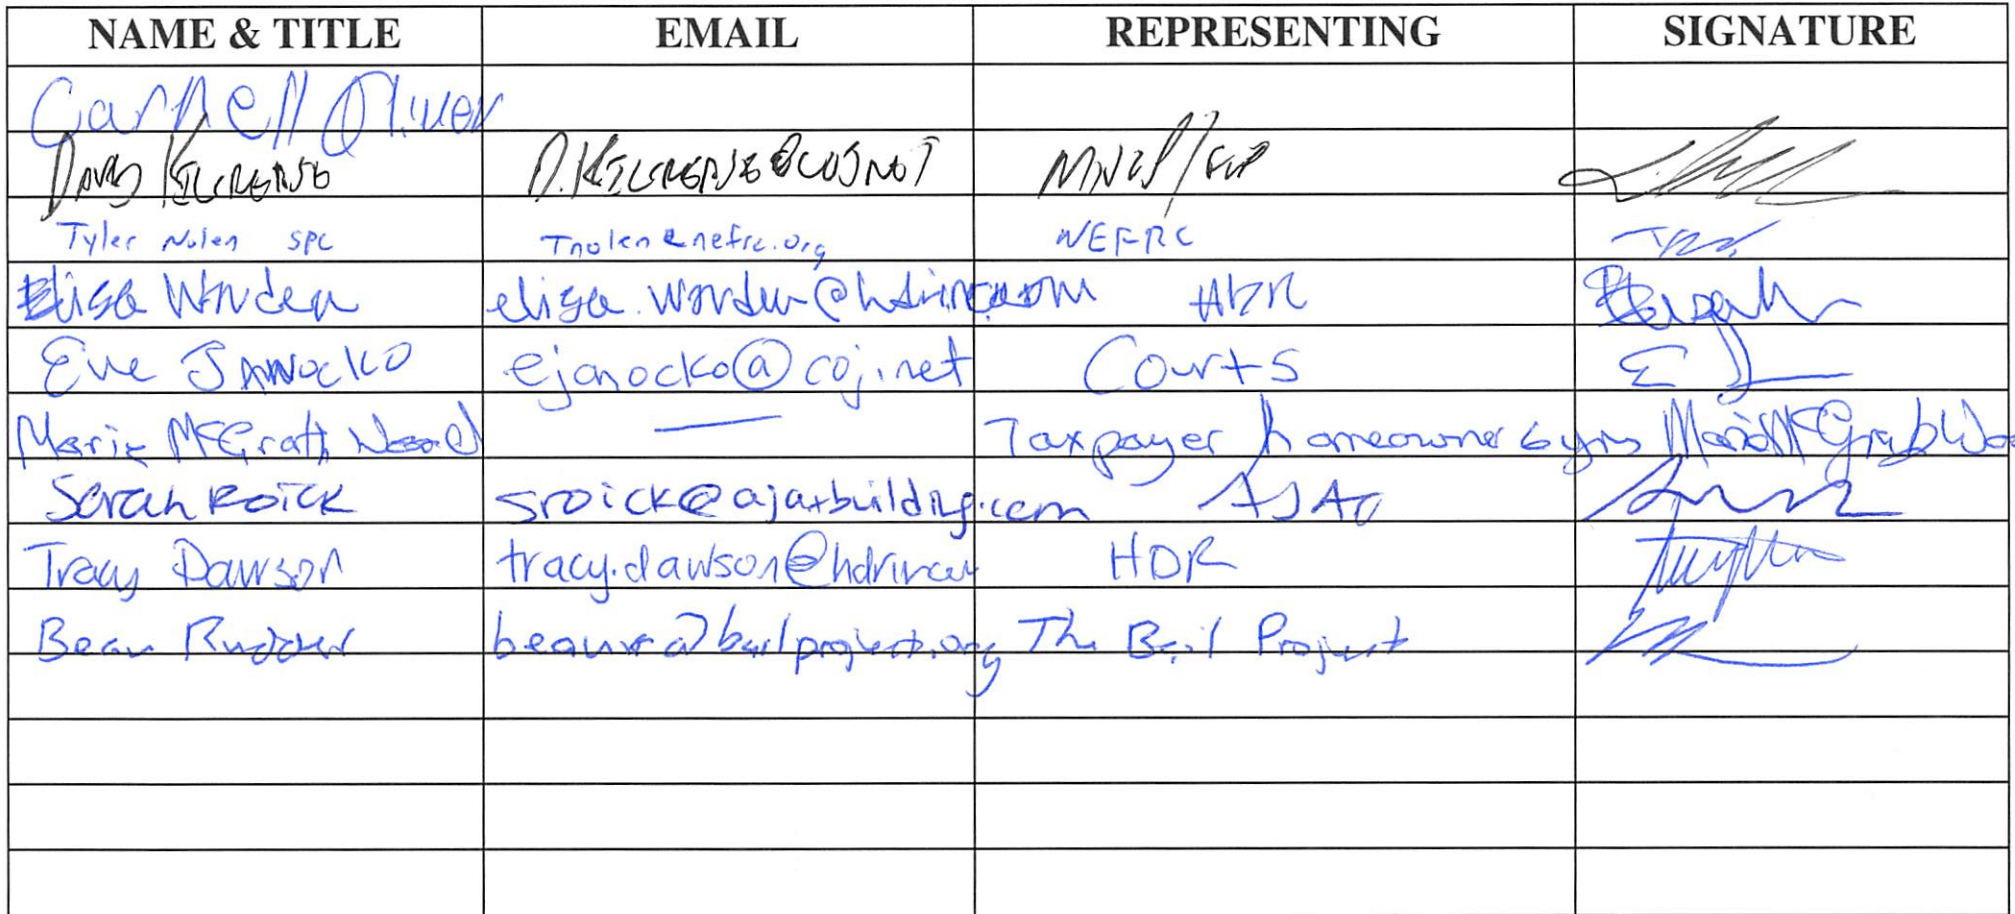 NAME & TITLE EMAIL REPRESENTING SIGNATURE
Carnell Oliver
David Kilcrease D.KILCREASE@COJ.NET
Tyler Nolen SPC Tnolen@nefrc.org NEFRC
Elisa Worden elisa.worden@hdrinc.com HDR
Eve JANOCKO ejanocko@coj.net Courts
Marie McGrath Wood — Taxpayer homeowner 6 yrs Marie McGrath Woo
Sarah Roick sroick@ajaxbuilding.com AJAX
Tracy Dawson tracy.dawson@hdrinc.com HDR
Beau Rudder The Bail Project